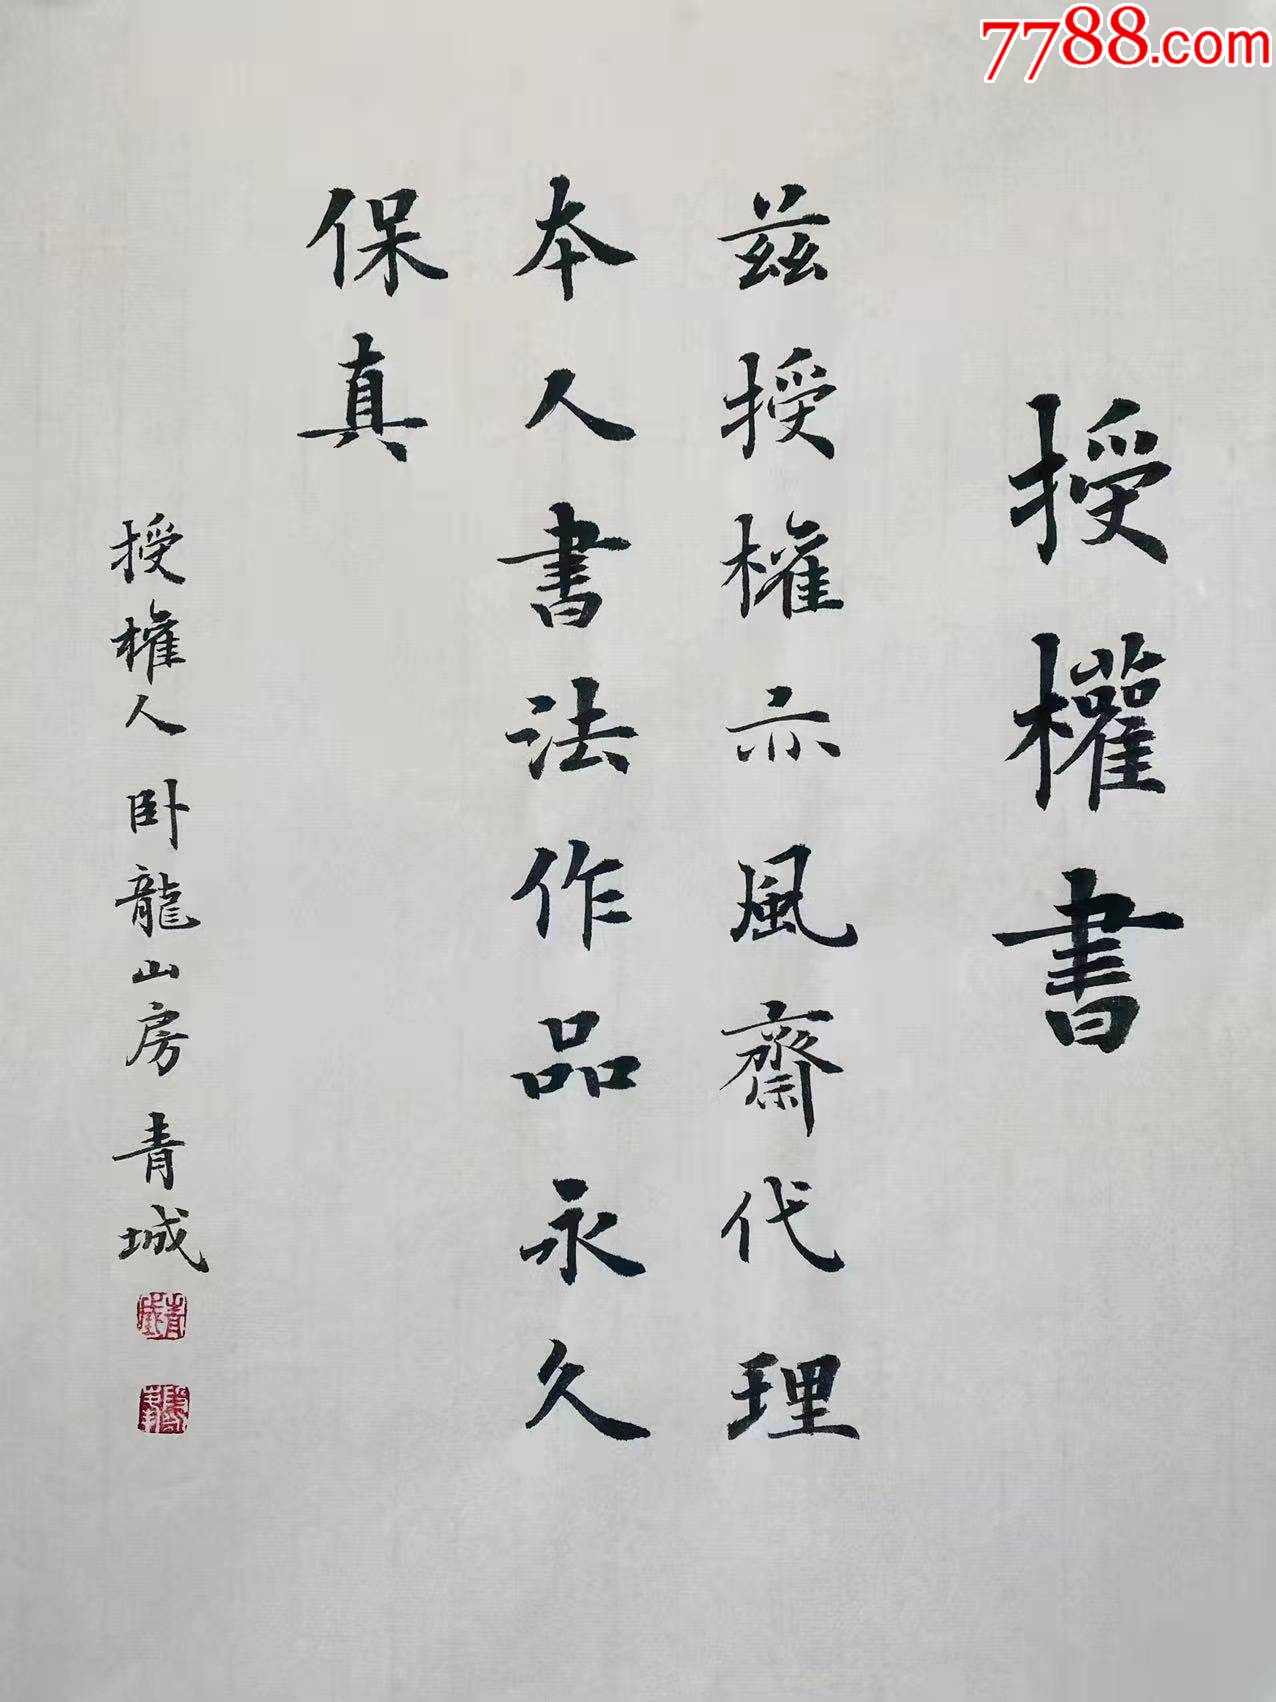 7788.com
授權書
茲授權亦風齋代理
本人書法作品永久
保真
授權人 卧龍山房 青城
青城